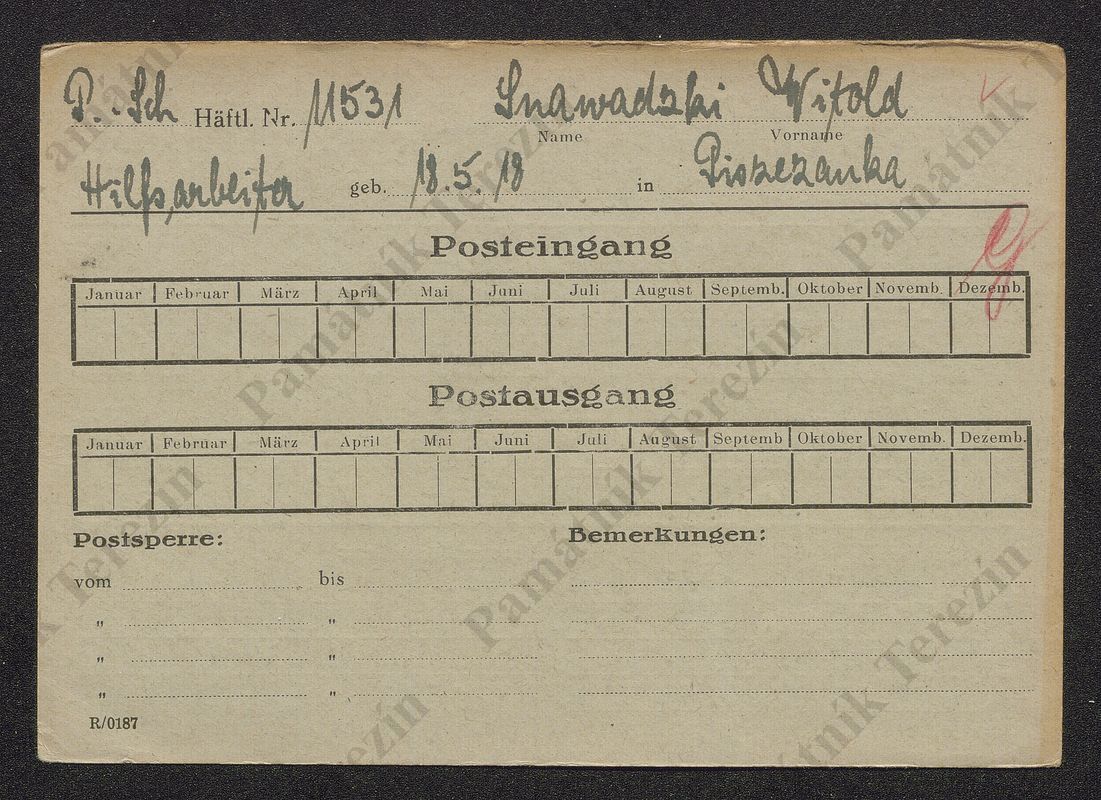 P.-Sch Häftl. Nr. 11531 Snawadzki Witold
Name Vorname
Hilfsarbeiter geb. 18.5.18 in Piszczanka
Posteingang
Januar Februar März April Mai Juni Juli August Septemb. Oktober Novemb. Dezemb.
Postausgang
Januar Februar März April Mai Juni Juli August Septemb Oktober Novemb. Dezemb.
Postsperre: Bemerkungen:
vom bis
" "
" "
" "
R/0187
Památník Terezín